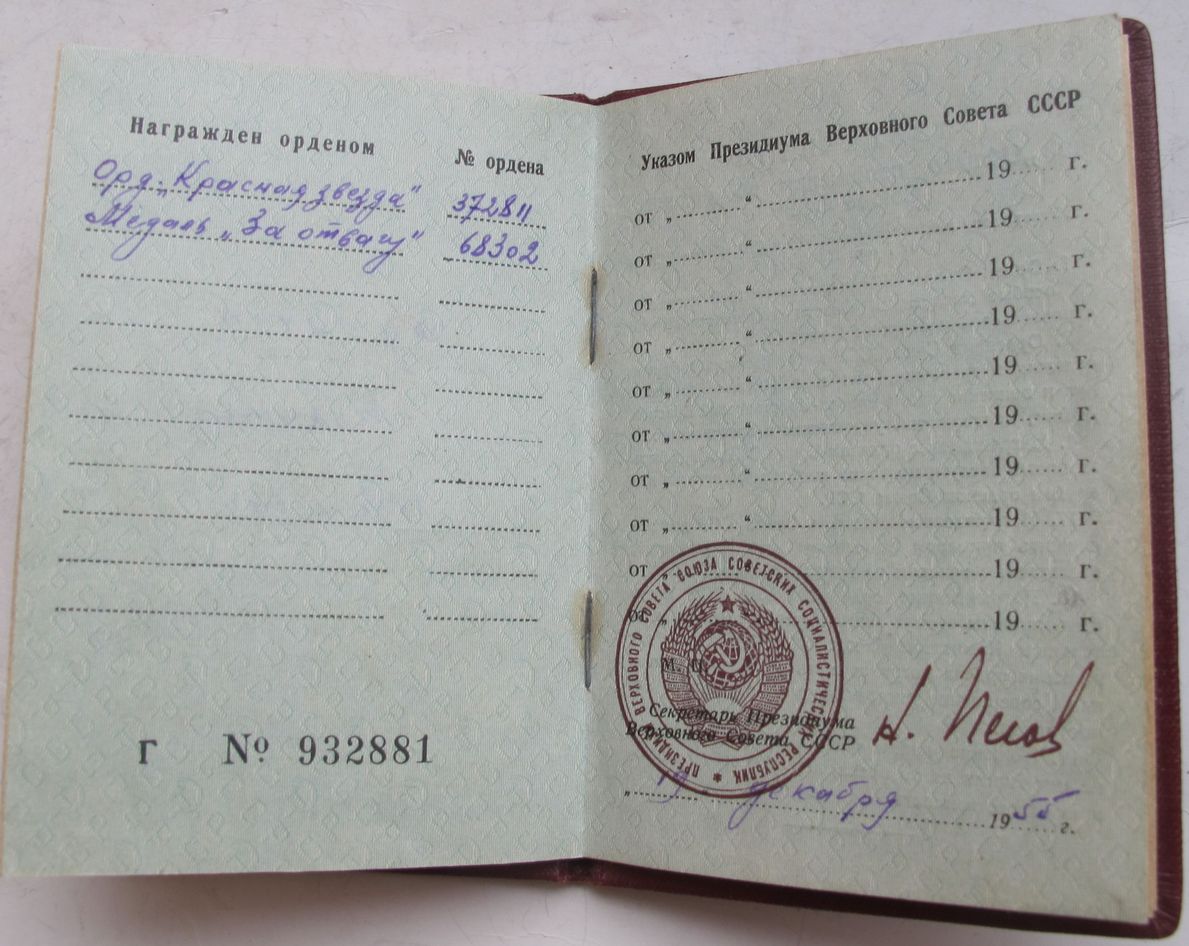 Награжден орденом № ордена
Орд. „Красная звезда" 372811
Медаль „За отвагу" 68302
Г № 932881
Указом Президиума Верховного Совета СССР
от „ “ 19 г.
от „ “ 19 г.
от „ “ 19 г.
от „ “ 19 г.
от „ “ 19 г.
от „ “ 19 г.
от „ “ 19 г.
от „ “ 19 г.
от „ “ 19 г.
от „ “ 19 г.
М. П.
ПРЕЗИДИУМ ВЕРХОВНОГО СОВЕТА СОЮЗА СОВЕТСКИХ СОЦИАЛИСТИЧЕСКИХ РЕСПУБЛИК
Секретарь Президиума
Верховного Совета СССР Н. Пегов
„19“ декабря 1955 г.